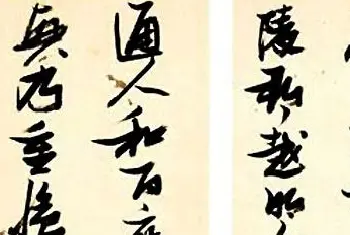 陵郡越明
通人和百
興乃重脩